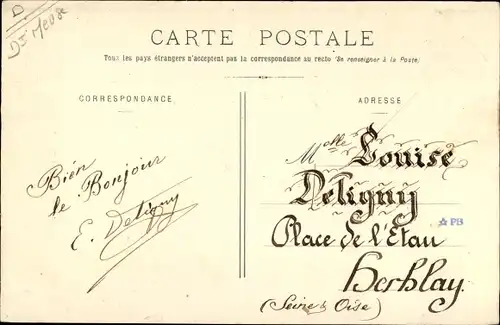 D
Dt Meuse
CARTE POSTALE
Tous les pays étrangers n'acceptent pas la correspondance au recto (Se renseigner à la Poste)
CORRESPONDANCE
ADRESSE
Bien
le Bonjour
E. Deligny
Melle Louise
Deligny
Place de l'Etan
Herblay.
(Seine & Oise)
PB